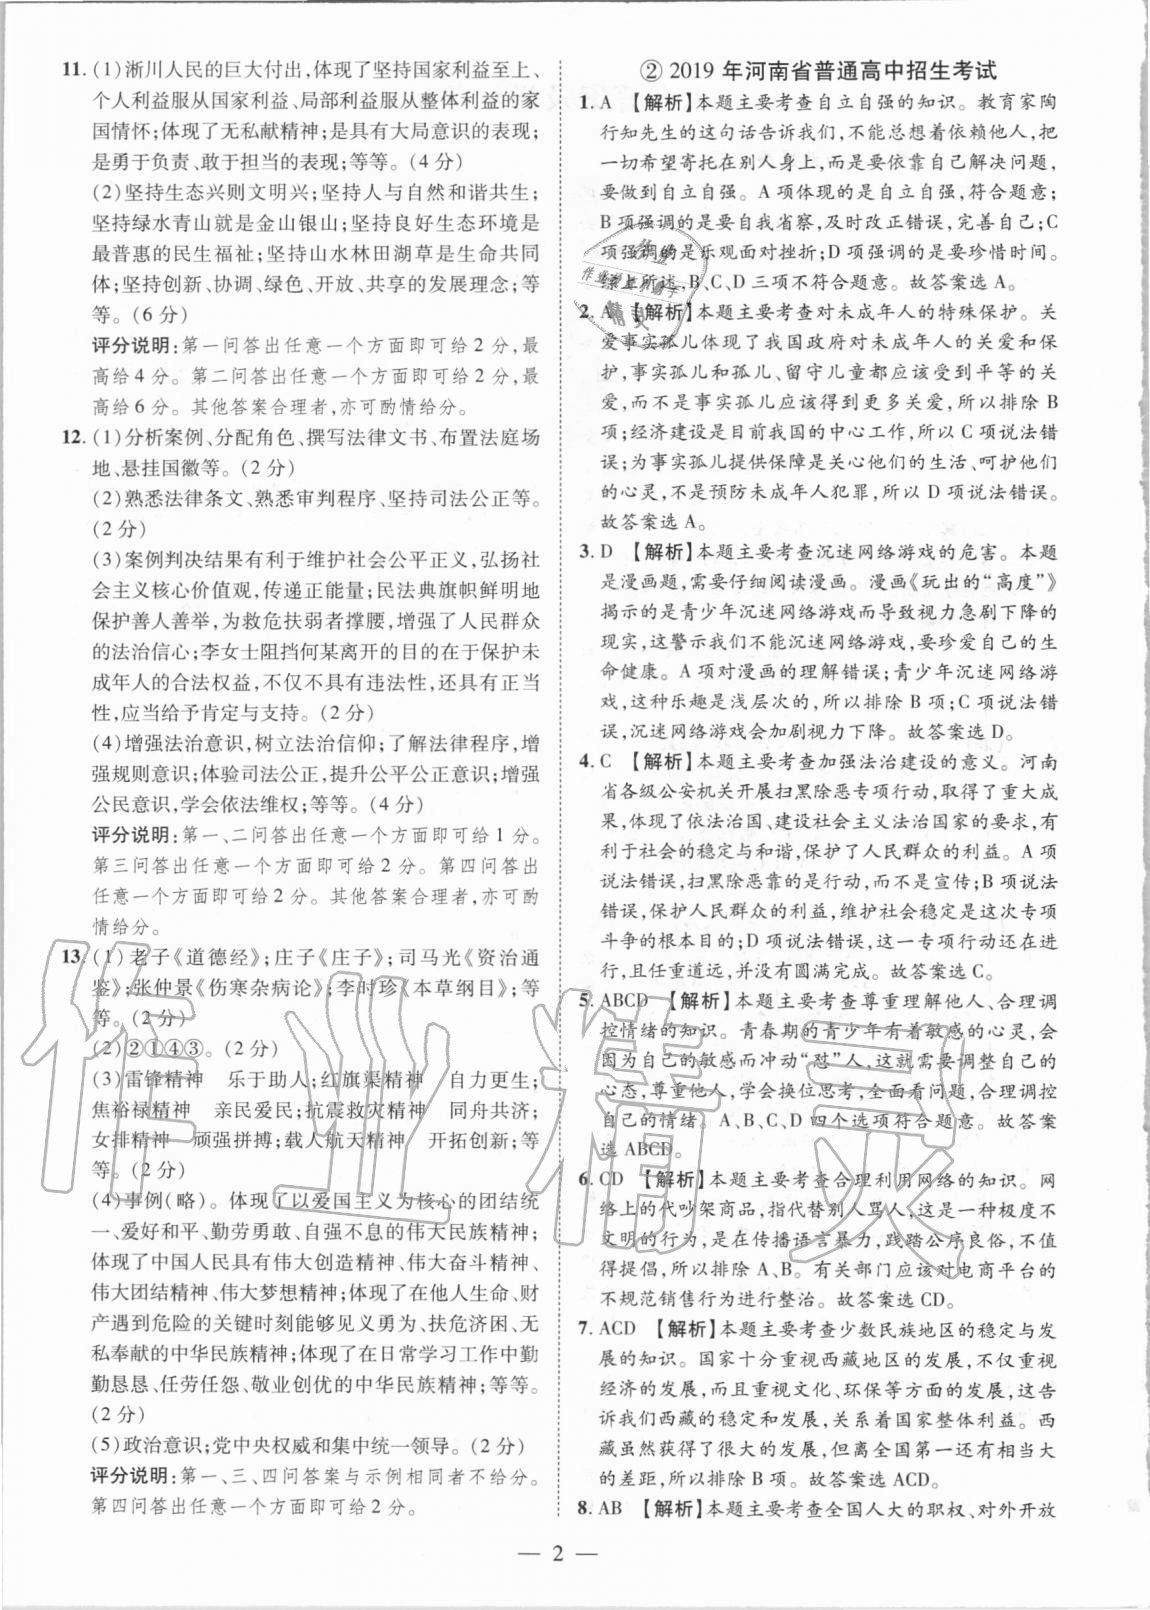 11. (1)淅川人民的巨大付出,体现了坚持国家利益至上、
个人利益服从国家利益、局部利益服从整体利益的家
国情怀;体现了无私献精神;是具有大局意识的表现;
是勇于负责、敢于担当的表现;等等。(4 分)
(2)坚持生态兴则文明兴;坚持人与自然和谐共生;
坚持绿水青山就是金山银山;坚持良好生态环境是
最普惠的民生福祉;坚持山水林田湖草是生命共同
体;坚持创新、协调、绿色、开放、共享的发展理念;等
等。(6 分)
评分说明:第一问答出任意一个方面即可给 2 分,最
高给 4 分。第二问答出任意一个方面即可给 2 分,最
高给 6 分。其他答案合理者,亦可酌情给分。
12. (1)分析案例、分配角色、撰写法律文书、布置法庭场
地、悬挂国徽等。(2 分)
(2)熟悉法律条文、熟悉审判程序、坚持司法公正等。
(2 分)
(3)案例判决结果有利于维护社会公平正义,弘扬社
会主义核心价值观,传递正能量;民法典旗帜鲜明地
保护善人善举,为救危扶弱者撑腰,增强了人民群众
的法治信心;李女士阻挡何某离开的目的在于保护未
成年人的合法权益,不仅不具有违法性,还具有正当
性,应当给予肯定与支持。(2 分)
(4)增强法治意识,树立法治信仰;了解法律程序,增
强规则意识;体验司法公正,提升公平公正意识;增强
公民意识,学会依法维权;等等。(4 分)
评分说明:第一、二问答出任意一个方面即可给 1 分。
第三问答出任意一个方面即可给 2 分。第四问答出
任意一个方面即可给 2 分。其他答案合理者,亦可酌
情给分。
13. (1)老子《道德经》;庄子《庄子》;司马光《资治通
鉴》;张仲景《伤寒杂病论》;李时珍《本草纲目》;等
等。(2 分)
(2)②①④③。(2 分)
(3)雷锋精神 乐于助人;红旗渠精神 自力更生;
焦裕禄精神 亲民爱民;抗震救灾精神 同舟共济;
女排精神 顽强拼搏;载人航天精神 开拓创新;等
等。(2 分)
(4)事例(略)。体现了以爱国主义为核心的团结统
一、爱好和平、勤劳勇敢、自强不息的伟大民族精神;
体现了中国人民具有伟大创造精神、伟大奋斗精神、
伟大团结精神、伟大梦想精神;体现了在他人生命、财
产遇到危险的关键时刻能够见义勇为、扶危济困、无
私奉献的中华民族精神;体现了在日常学习工作中勤
勤恳恳、任劳任怨、敬业创优的中华民族精神;等等。
(2 分)
(5)政治意识;党中央权威和集中统一领导。(2 分)
评分说明:第一、三、四问答案与示例相同者不给分。
第四问答出任意一个方面即可给 2 分。
② 2019 年河南省普通高中招生考试
1. A 【解析】本题主要考查自立自强的知识。教育家陶
行知先生的这句话告诉我们,不能总想着依赖他人,把
一切希望寄托在别人身上,而是要依靠自己解决问题,
要做到自立自强。A 项体现的是自立自强,符合题意;
B 项强调的是要自我省察,及时改正错误,完善自己;C
项强调的是乐观面对挫折;D 项强调的是要珍惜时间。
综上所述,B、C、D 三项不符合题意。故答案选 A。
2. A 【解析】本题主要考查对未成年人的特殊保护。关
爱事实孤儿体现了我国政府对未成年人的关爱和保
护,事实孤儿和孤儿、留守儿童都应该受到平等的关
爱,而不是事实孤儿应该得到更多关爱,所以排除 B
项;经济建设是目前我国的中心工作,所以 C 项说法错
误;为事实孤儿提供保障是关心他们的生活、呵护他们
的心灵,不是预防未成年人犯罪,所以 D 项说法错误。
故答案选 A。
3. D 【解析】本题主要考查沉迷网络游戏的危害。本题
是漫画题,需要仔细阅读漫画。漫画《玩出的“高度”》
揭示的是青少年沉迷网络游戏而导致视力急剧下降的
现实,这警示我们不能沉迷网络游戏,要珍爱自己的生
命健康。A 项对漫画的理解错误;青少年沉迷网络游
戏,这种乐趣是浅层次的,所以排除 B 项;C 项说法错
误,沉迷网络游戏会加剧视力下降。故答案选 D。
4. C 【解析】本题主要考查加强法治建设的意义。河南
省各级公安机关开展扫黑除恶专项行动,取得了重大成
果,体现了依法治国、建设社会主义法治国家的要求,有
利于社会的稳定与和谐,保护了人民群众的利益。A 项
说法错误,扫黑除恶靠的是行动,而不是宣传;B 项说法
错误,保护人民群众的利益,维护社会稳定是这次专项
斗争的根本目的;D 项说法错误,这一专项行动还在进
行,且任重道远,并没有圆满完成。故答案选 C。
5. ABCD 【解析】本题主要考查尊重理解他人、合理调
控情绪的知识。青春期的青少年有着敏感的心灵,会
因为自己的敏感而冲动“怼”人,这就需要调整自己的
心态,尊重他人,学会换位思考,全面看问题,合理调控
自己的情绪。A、B、C、D 四个选项符合题意。故答案
选 ABCD。
6. CD 【解析】本题主要考查合理利用网络的知识。网
络上的代吵架商品,指代替别人骂人,这是一种极度不
文明的行为,是在传播语言暴力,践踏公序良俗,不值
得提倡,所以排除 A、B。有关部门应该对电商平台的
不规范销售行为进行整治。故答案选 CD。
7. ACD 【解析】本题主要考查少数民族地区的稳定与发
展的知识。国家十分重视西藏地区的发展,不仅重视
经济的发展,而且重视文化、环保等方面的发展,这告
诉我们西藏的稳定和发展,关系着国家整体利益。西
藏虽然获得了很大的发展,但离全国第一还有相当大
的差距,所以排除 B 项。故答案选 ACD。
8. AB 【解析】本题主要考查全国人大的职权、对外开放
— 2 —
作业精灵